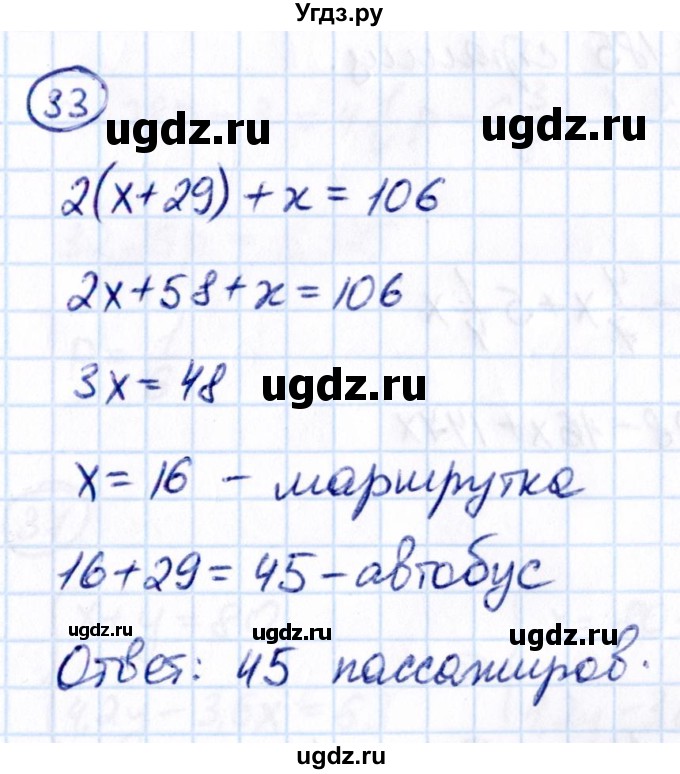 Угдз.ру
33
ugdz.ru ugdz.ru
2(x+29)+x=106
2x+58+x=106
3x=48 ugdz.ru
x=16 - маршрутка
16+29=45-автобус
ugdz.ru ugdz.ru ugdz.ru
Ответ: 45 пассажиров.
ugdz.ru